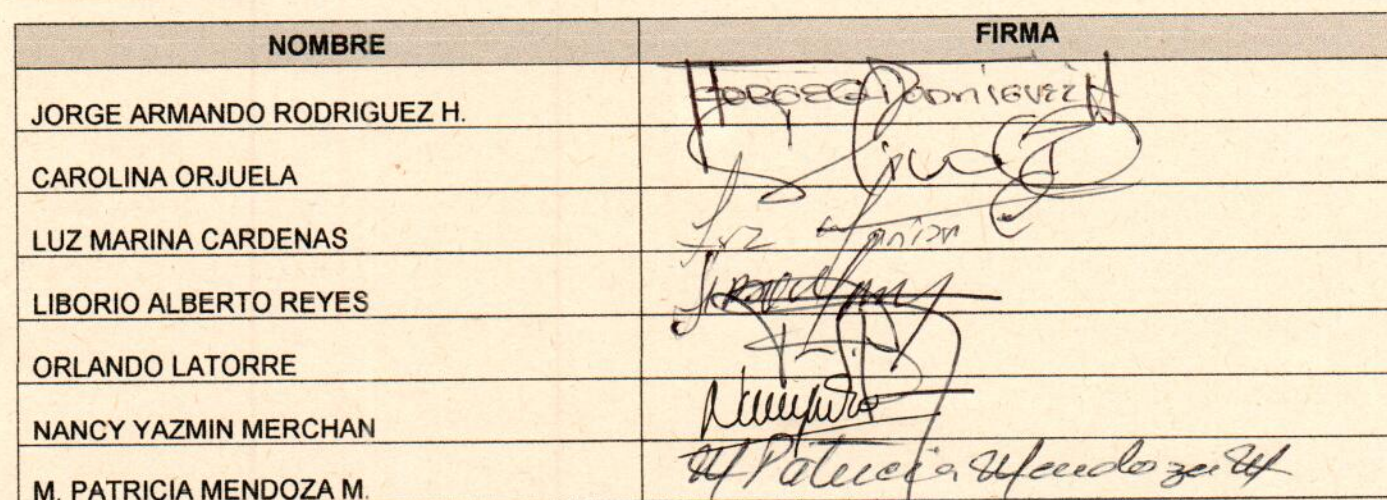 NOMBRE FIRMA
JORGE ARMANDO RODRIGUEZ H. JORGE Rodriguez H
CAROLINA ORJUELA
LUZ MARINA CARDENAS Luz Marina C
LIBORIO ALBERTO REYES
ORLANDO LATORRE
NANCY YAZMIN MERCHAN
M. PATRICIA MENDOZA M. M Patricia Mendoza M